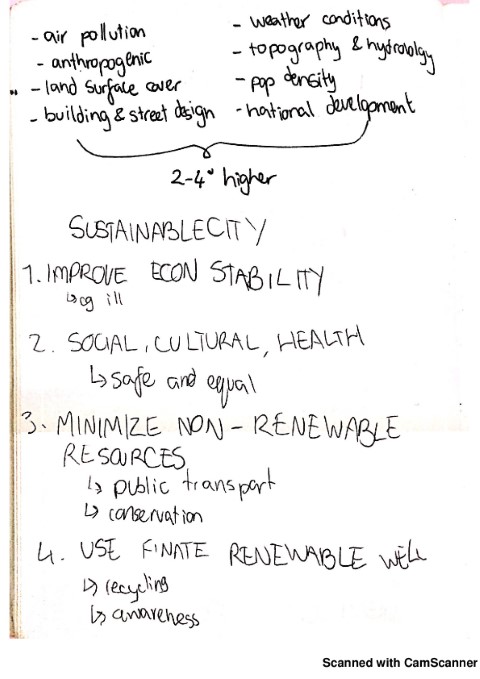 - air pollution
- anthropogenic
- land surface cover
- building & street design
- weather conditions
- topography & hydrology
- pop density
- national development
2-4° higher
SUSTAINABLECITY
1. IMPROVE ECON STABILITY
↳ eg ill
2. SOCIAL, CULTURAL, HEALTH
↳ safe and equal
3. MINIMIZE NON-RENEWABLE
RESOURCES
↳ public transport
↳ conservation
4. USE FINATE RENEWABLE WELL
↳ recycling
↳ awareness
Scanned with CamScanner